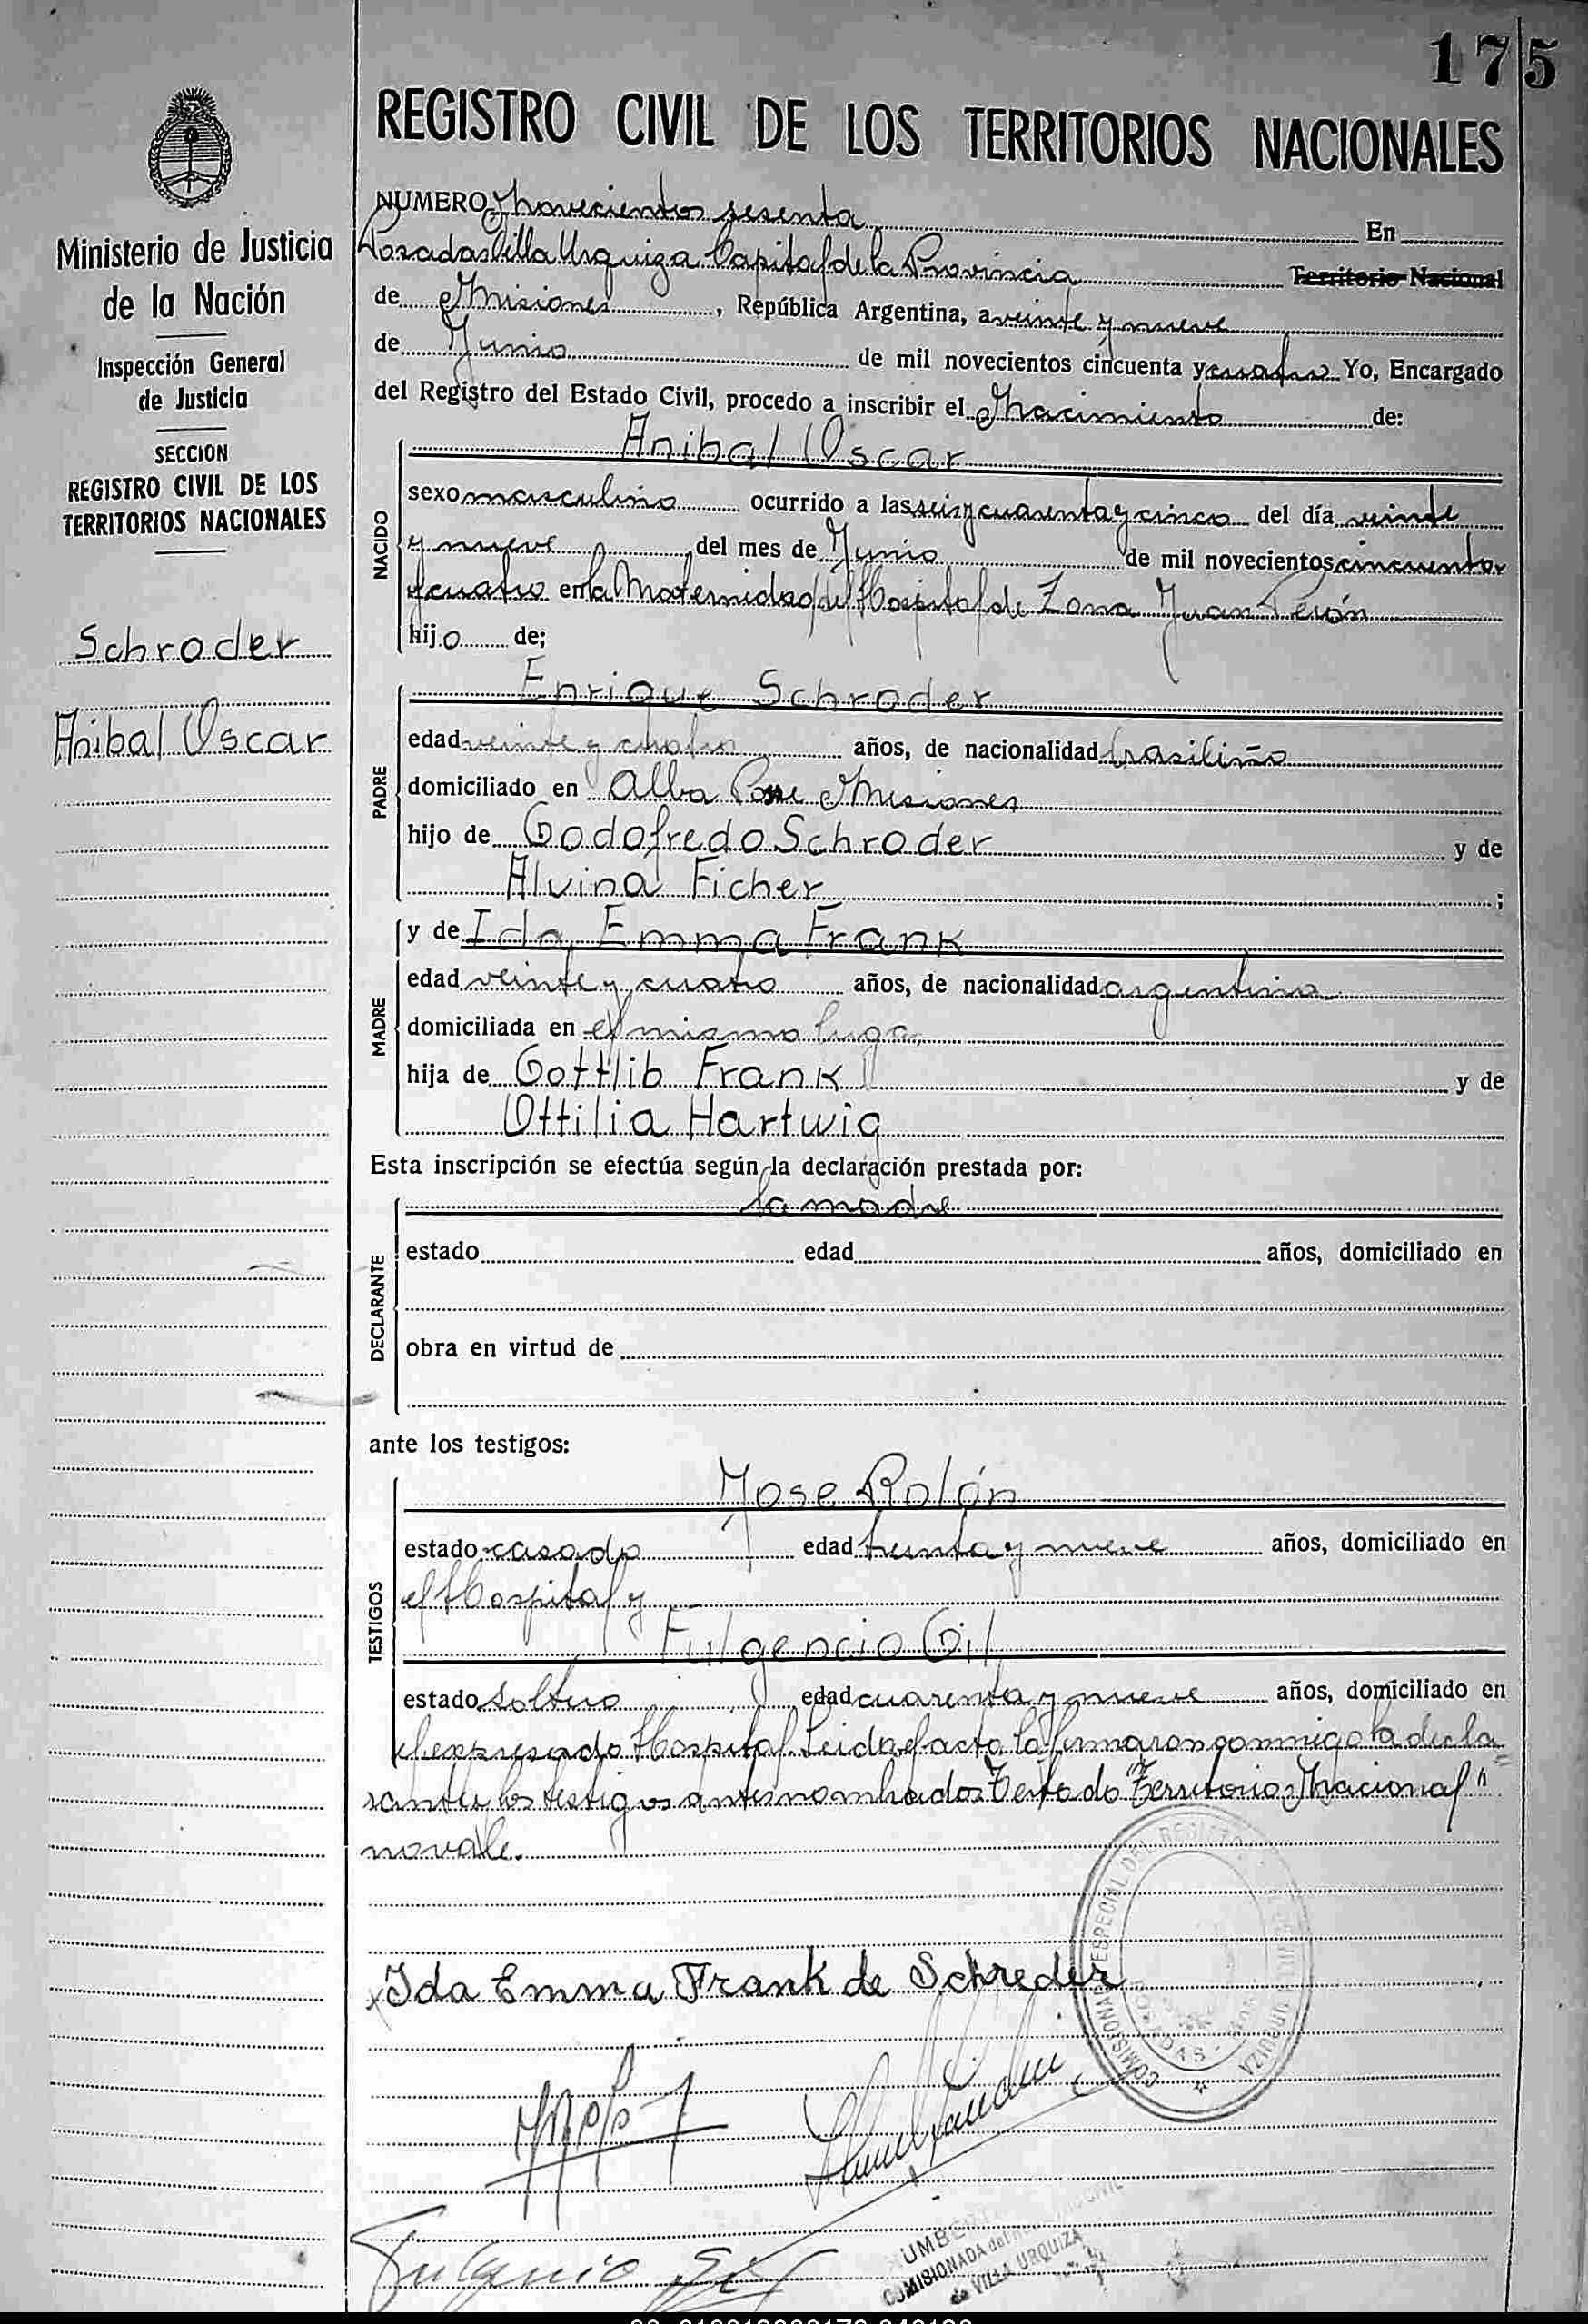 175
REGISTRO CIVIL DE LOS TERRITORIOS NACIONALES
Ministerio de Justicia
de la Nación
Inspección General
de Justicia
SECCION
REGISTRO CIVIL DE LOS
TERRITORIOS NACIONALES
Schroder
Anibal Oscar
NUMERO Novecientos sesenta En
Posadas Villa Urquiza Capital de la Provincia Territorio Nacional
de Misiones, República Argentina, a veinte y nueve
de Junio de mil novecientos cincuenta y cuatro Yo, Encargado
del Registro del Estado Civil, procedo a inscribir el Nacimiento de:
NACIDO
Anibal Oscar
sexo masculino ocurrido a las seis y cuarenta y cinco del día veinte
y nueve del mes de Junio de mil novecientos cincuenta
y cuatro en la Maternidad del Hospital de Zona Juan Perón
hijo de;
PADRE
Enrique Schroder
edad veinte y cuatro años, de nacionalidad brasiliño
domiciliado en Alba Posse Misiones
hijo de Godofredo Schroder y de
Alvina Ficher ;
MADRE
y de Ida Emma Frank
edad veinte y cuatro años, de nacionalidad argentina
domiciliada en el mismo lugar
hija de Gottlib Frank y de
Ottilia Hartwig
Esta inscripción se efectúa según la declaración prestada por:
DECLARANTE
la madre
estado edad años, domiciliado en
obra en virtud de
ante los testigos:
TESTIGOS
Jose Rolón
estado casado edad treinta y nueve años, domiciliado en
el Hospital y
Fulgencio Gil
estado soltero edad cuarenta y nueve años, domiciliado en
el expresado Hospital. Leida el acta la firmaron conmigo la decla
rante y los testigos antes nombrados. Testado "Territorio Nacional"
no vale.
Ida Emma Frank de Schreder
COMISIONADA ESPECIAL DEL REGISTRO
URQUIZA
POSADAS
Fulgencio Gil
COMISIONADA del CIVIL
de VILLA URQUIZA